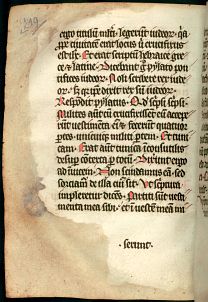 ergo titulum mlti legerunt iudeor. qa
ppe ciuitate erat locus u crucifixus
est ihs. Et erat scriptum hebraice gre
ce & latine. Dicebant g pylato pon
tifices iudeor. Noli scribere rex iude
or. sz qr ipe dixit rex sum iudeor.
Respondit pylatus. Qd scpsi scpsi.
Milites autem cu crucifixissent eu accepe
runt uestimenta ei & fecerunt quatuor
ptes. unicuiqz militi ptem. Et tuni
cam. Erat aut tunica inconsutilis
desup contexta p totu. Dixerunt ergo
ad inuicem. Non scindamus eam. sed
sorciam de illa cui sit. Ut scptura
impleretur dicens. Partiti sunt uesti
menta mea sibi. et i ueste mea mi
serunt.